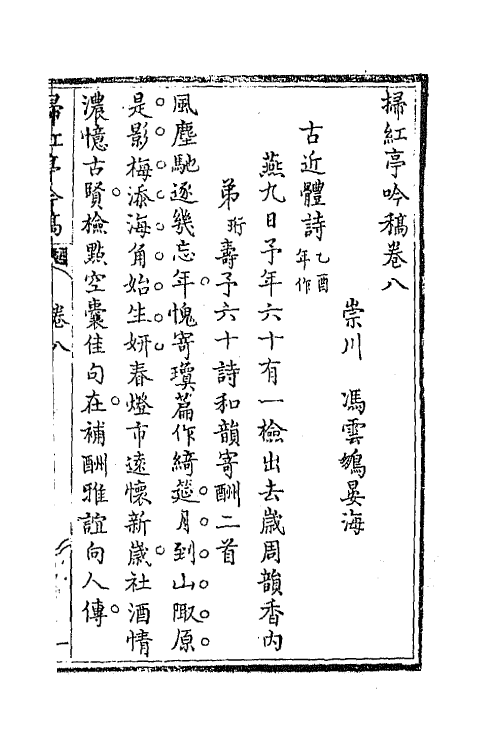 掃紅亭吟稿卷八
崇川　馮雲鵷晏海
古近體詩乙酉年作
燕九日予年六十有一檢出去歲周韻香內
弟珩壽予六十詩和韻寄酬二首
風塵馳逐幾忘年愧寄瓊篇作綺筵月到山陬原
是影梅添海角始生妍春燈市遠懷新歲社酒情
濃憶古賢檢點空囊佳句在補酬雅誼向人傳
掃紅亭吟稿
卷八
一